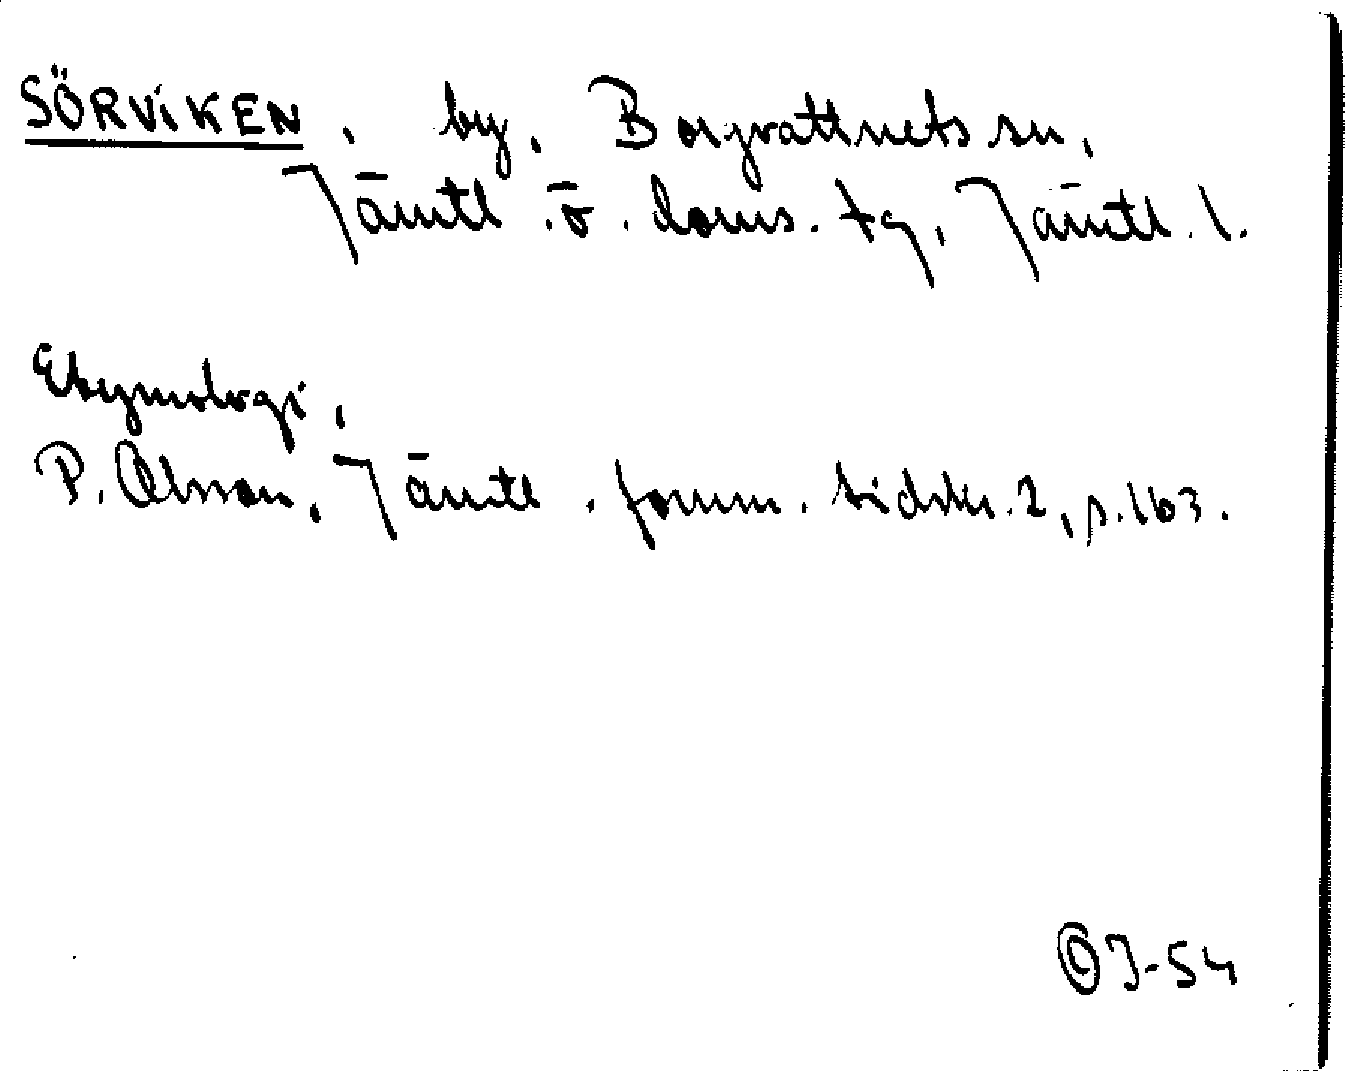 SÖRVIKEN, by, Borgvattnets sn,
Jämtl. ö. doms. tg, Jämtl. l.
Etymologi,
P. Olsson, Jämtl. fornm. tidskr. 2, s. 163.
J-54